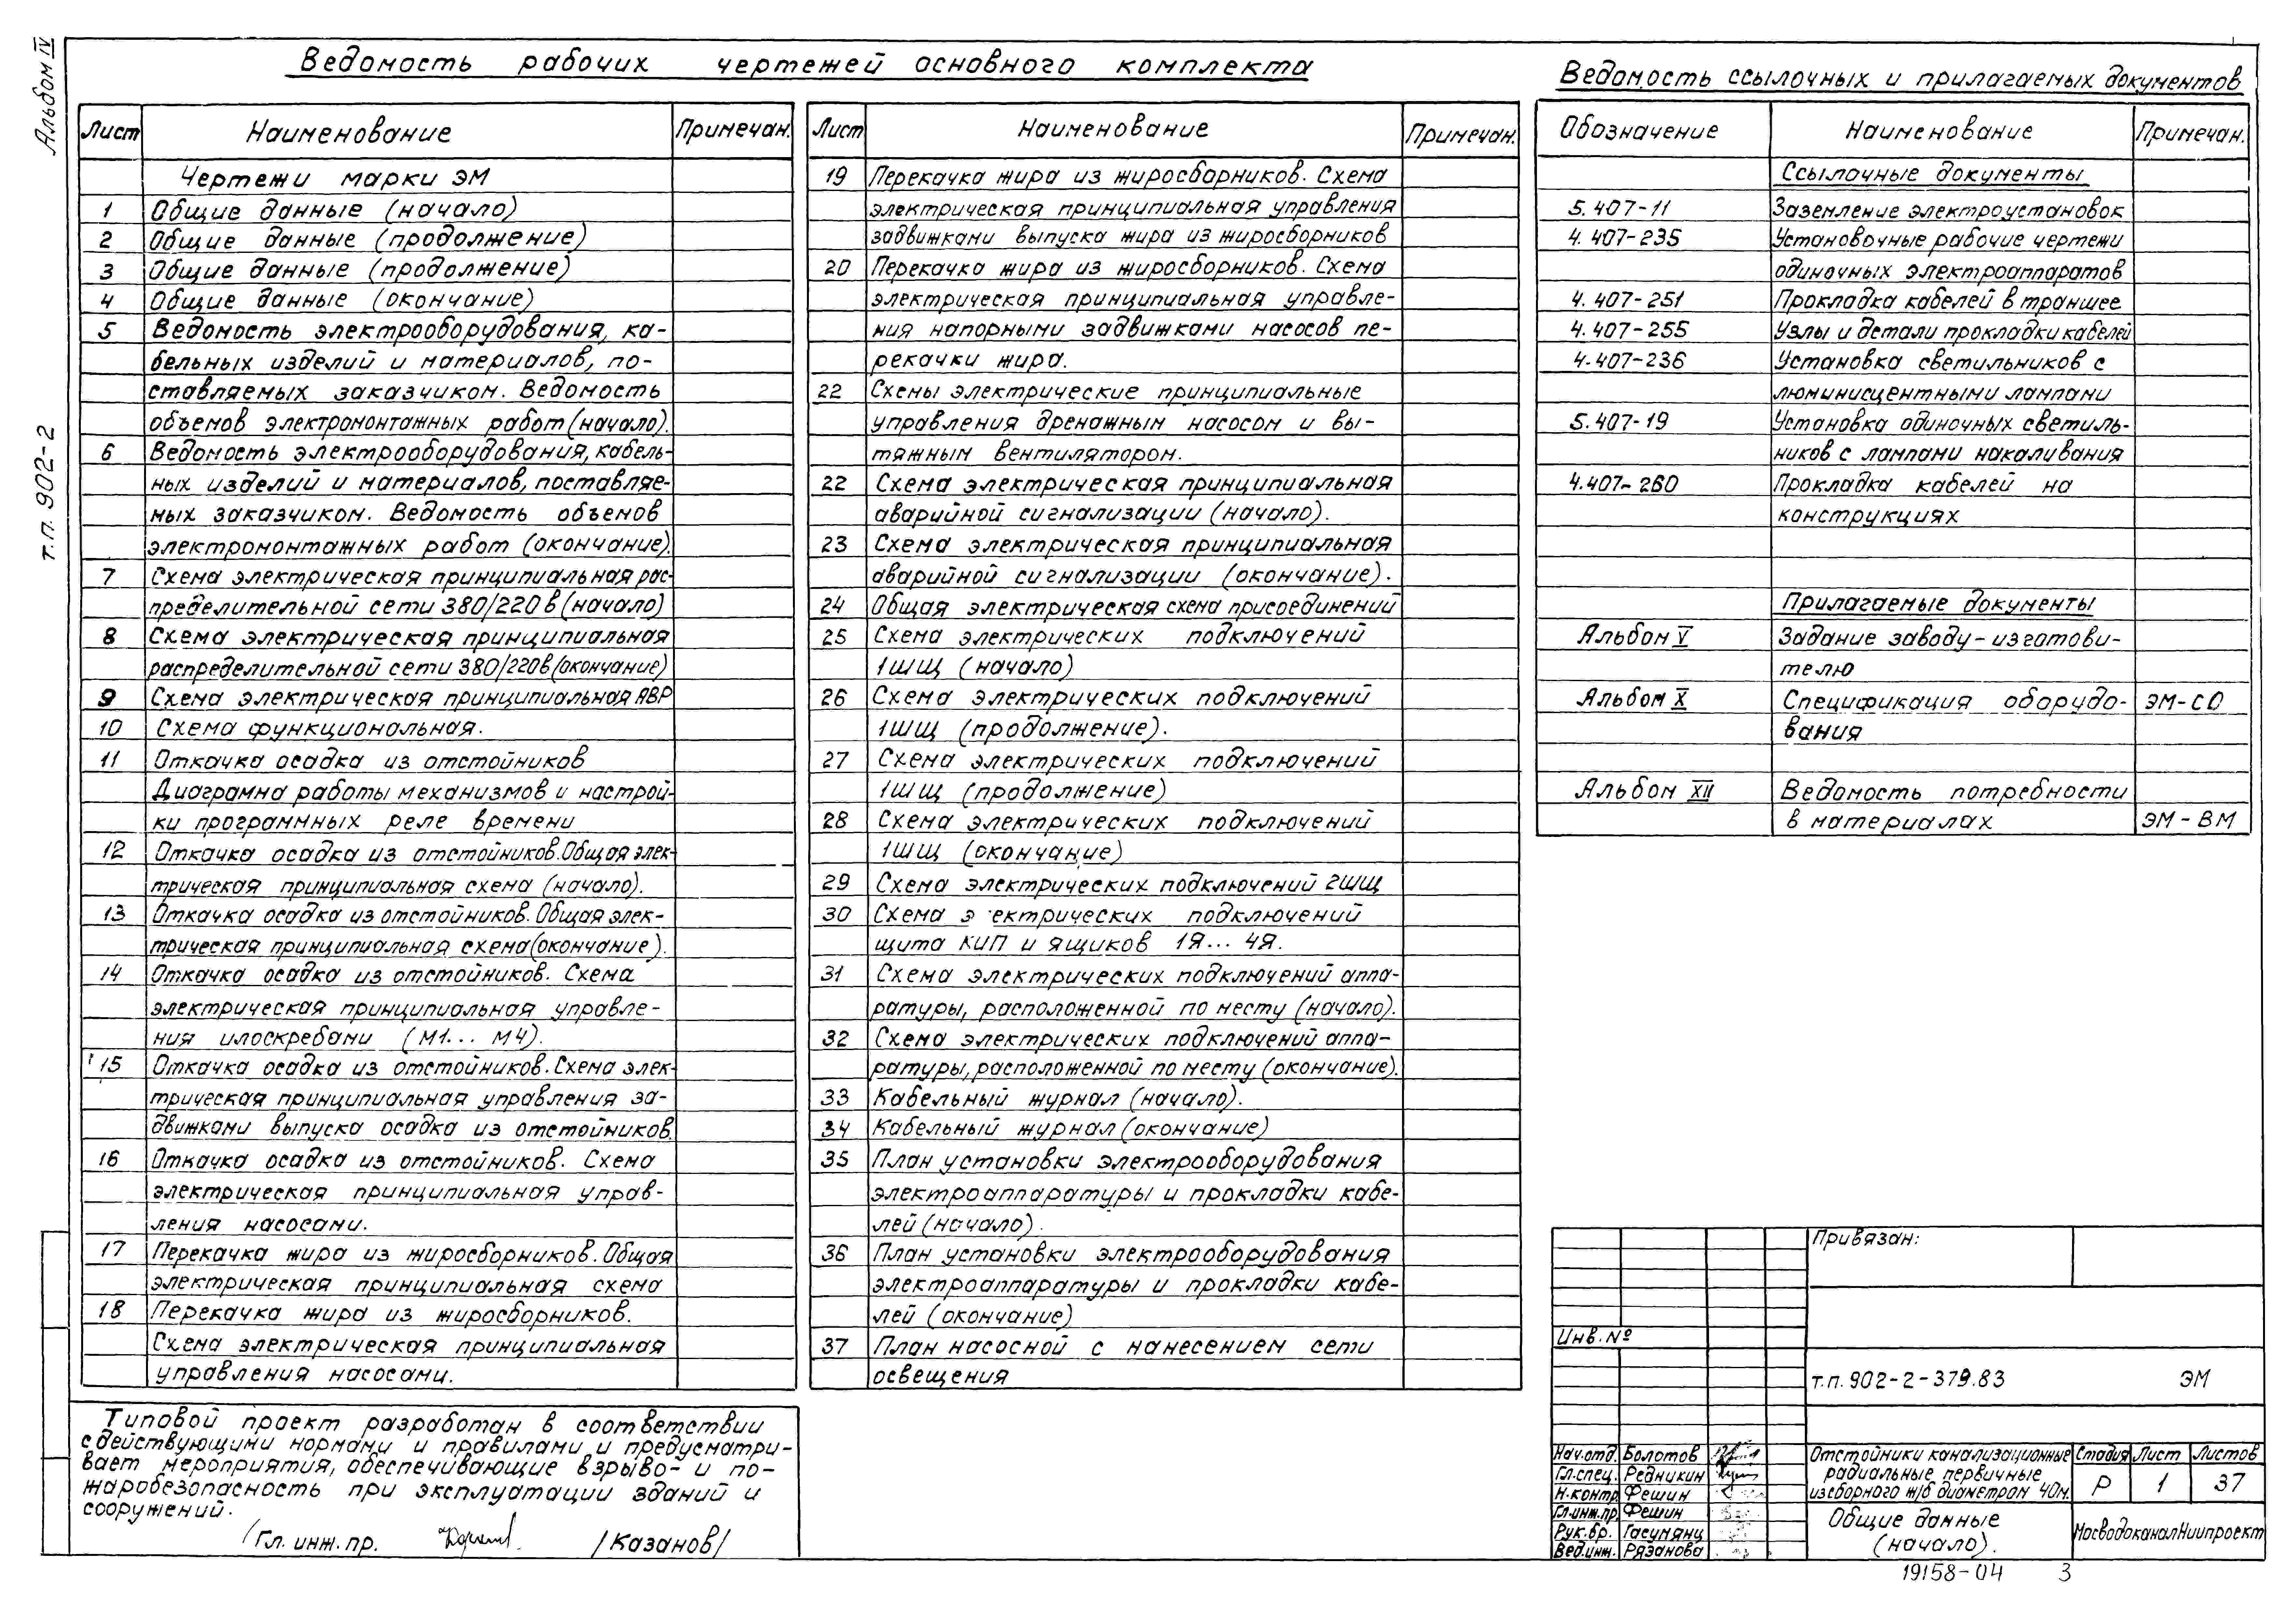 Альбом IV
т.п. 902-2
Ведомость рабочих чертежей основного комплекта
Лист Наименование Примечан.
Чертежи марки ЭМ
1 Общие данные (начало)
2 Общие данные (продолжение)
3 Общие данные (продолжение)
4 Общие данные (окончание)
5 Ведомость электрооборудования, ка-
бельных изделий и материалов, по-
ставляемых заказчиком. Ведомость
объемов электромонтажных работ (начало).
6 Ведомость электрооборудования, кабель-
ных изделий и материалов, поставляе-
мых заказчиком. Ведомость объемов
электромонтажных работ (окончание).
7 Схема электрическая принципиальная рас-
пределительной сети 380/220 в (начало)
8 Схема электрическая принципиальная
распределительной сети 380/220в (окончание)
9 Схема электрическая принципиальная АВР
10 Схема функциональная.
11 Откачка осадка из отстойников
Диаграмма работы механизмов и настрой-
ки программных реле времени
12 Откачка осадка из отстойников. Общая элек-
трическая принципиальная схема (начало).
13 Откачка осадка из отстойников. Общая элек-
трическая принципиальная схема (окончание).
14 Откачка осадка из отстойников. Схема
электрическая принципиальная управле-
ния илоскребами (М1... М4).
15 Откачка осадка из отстойников. Схема элек-
трическая принципиальная управления за-
движками выпуска осадка из отстойников.
16 Откачка осадка из отстойников. Схема
электрическая принципиальная управ-
ления насосами.
17 Перекачка жира из жиросборников. Общая
электрическая принципиальная схема
18 Перекачка жира из жиросборников.
Схема электрическая принципиальная
управления насосами.
Лист Наименование Примечан.
19 Перекачка жира из жиросборников. Схема
электрическая принципиальная управления
задвижками выпуска жира из жиросборников
20 Перекачка жира из жиросборников. Схема
электрическая принципиальная управле-
ния напорными задвижками насосов пе-
рекачки жира.
22 Схемы электрические принципиальные
управления дренажным насосом и вы-
тяжным вентилятором.
22 Схема электрическая принципиальная
аварийной сигнализации (начало).
23 Схема электрическая принципиальная
аварийной сигнализации (окончание).
24 Общая электрическая схема присоединений
25 Схема электрических подключений
1ШЩ (начало)
26 Схема электрических подключений
1ШЩ (продолжение).
27 Схема электрических подключений
1ШЩ (продолжение)
28 Схема электрических подключений
1ШЩ (окончание)
29 Схема электрических подключений 2ШЩ
30 Схема э ектрических подключений
щита КИП и ящиков 1Я... 4Я.
31 Схема электрических подключений аппа-
ратуры, расположенной по месту (начало).
32 Схема электрических подключений аппа-
ратуры, расположенной по месту (окончание).
33 Кабельный журнал (начало).
34 Кабельный журнал (окончание)
35 План установки электрооборудования
электроаппаратуры и прокладки кабе-
лей (начало).
36 План установки электрооборудования
электроаппаратуры и прокладки кабе-
лей (окончание)
37 План насосной с нанесением сети
освещения
Ведомость ссылочных и прилагаемых документов
Обозначение Наименование Примечан.
Ссылочные документы
5.407-11 Заземление электроустановок
4.407-235 Установочные рабочие чертежи
одиночных электроаппаратов
4.407-251 Прокладка кабелей в траншее
4.407-255 Узлы и детали прокладки кабелей
4.407-236 Установка светильников с
люминисцентными лампами
5.407-19 Установка одиночных светиль-
ников с лампами накаливания
4.407-260 Прокладка кабелей на
конструкциях
Прилагаемые документы
Альбом V Задание заводу-изготови-
телю
Альбом X Спецификация оборудо- ЭМ-СО
вания
Альбом XII Ведомость потребности
в материалах ЭМ-ВМ
Типовой проект разработан в соответствии
с действующими нормами и правилами и предусматри-
вает мероприятия, обеспечивающие взрыво- и по-
жаробезопасность при эксплуатации зданий и
сооружений.
/Гл. инж. пр. /Казанов/
Привязан:
Инв. №
т.п. 902-2-379.83 ЭМ
Нач.отд. Болотов
Гл.спец. Редникин
Н.контр. Фешин
Гл.инж.пр. Фешин
Рук.бр. Гасумянц
Вед.инж. Рязанова
Отстойники канализационные
радиальные первичные
из сборного ж/б диаметром 40м.
Стадия Лист Листов
Р 1 37
Общие данные
(начало).
МосводоканалНиипроект
19158-04 3